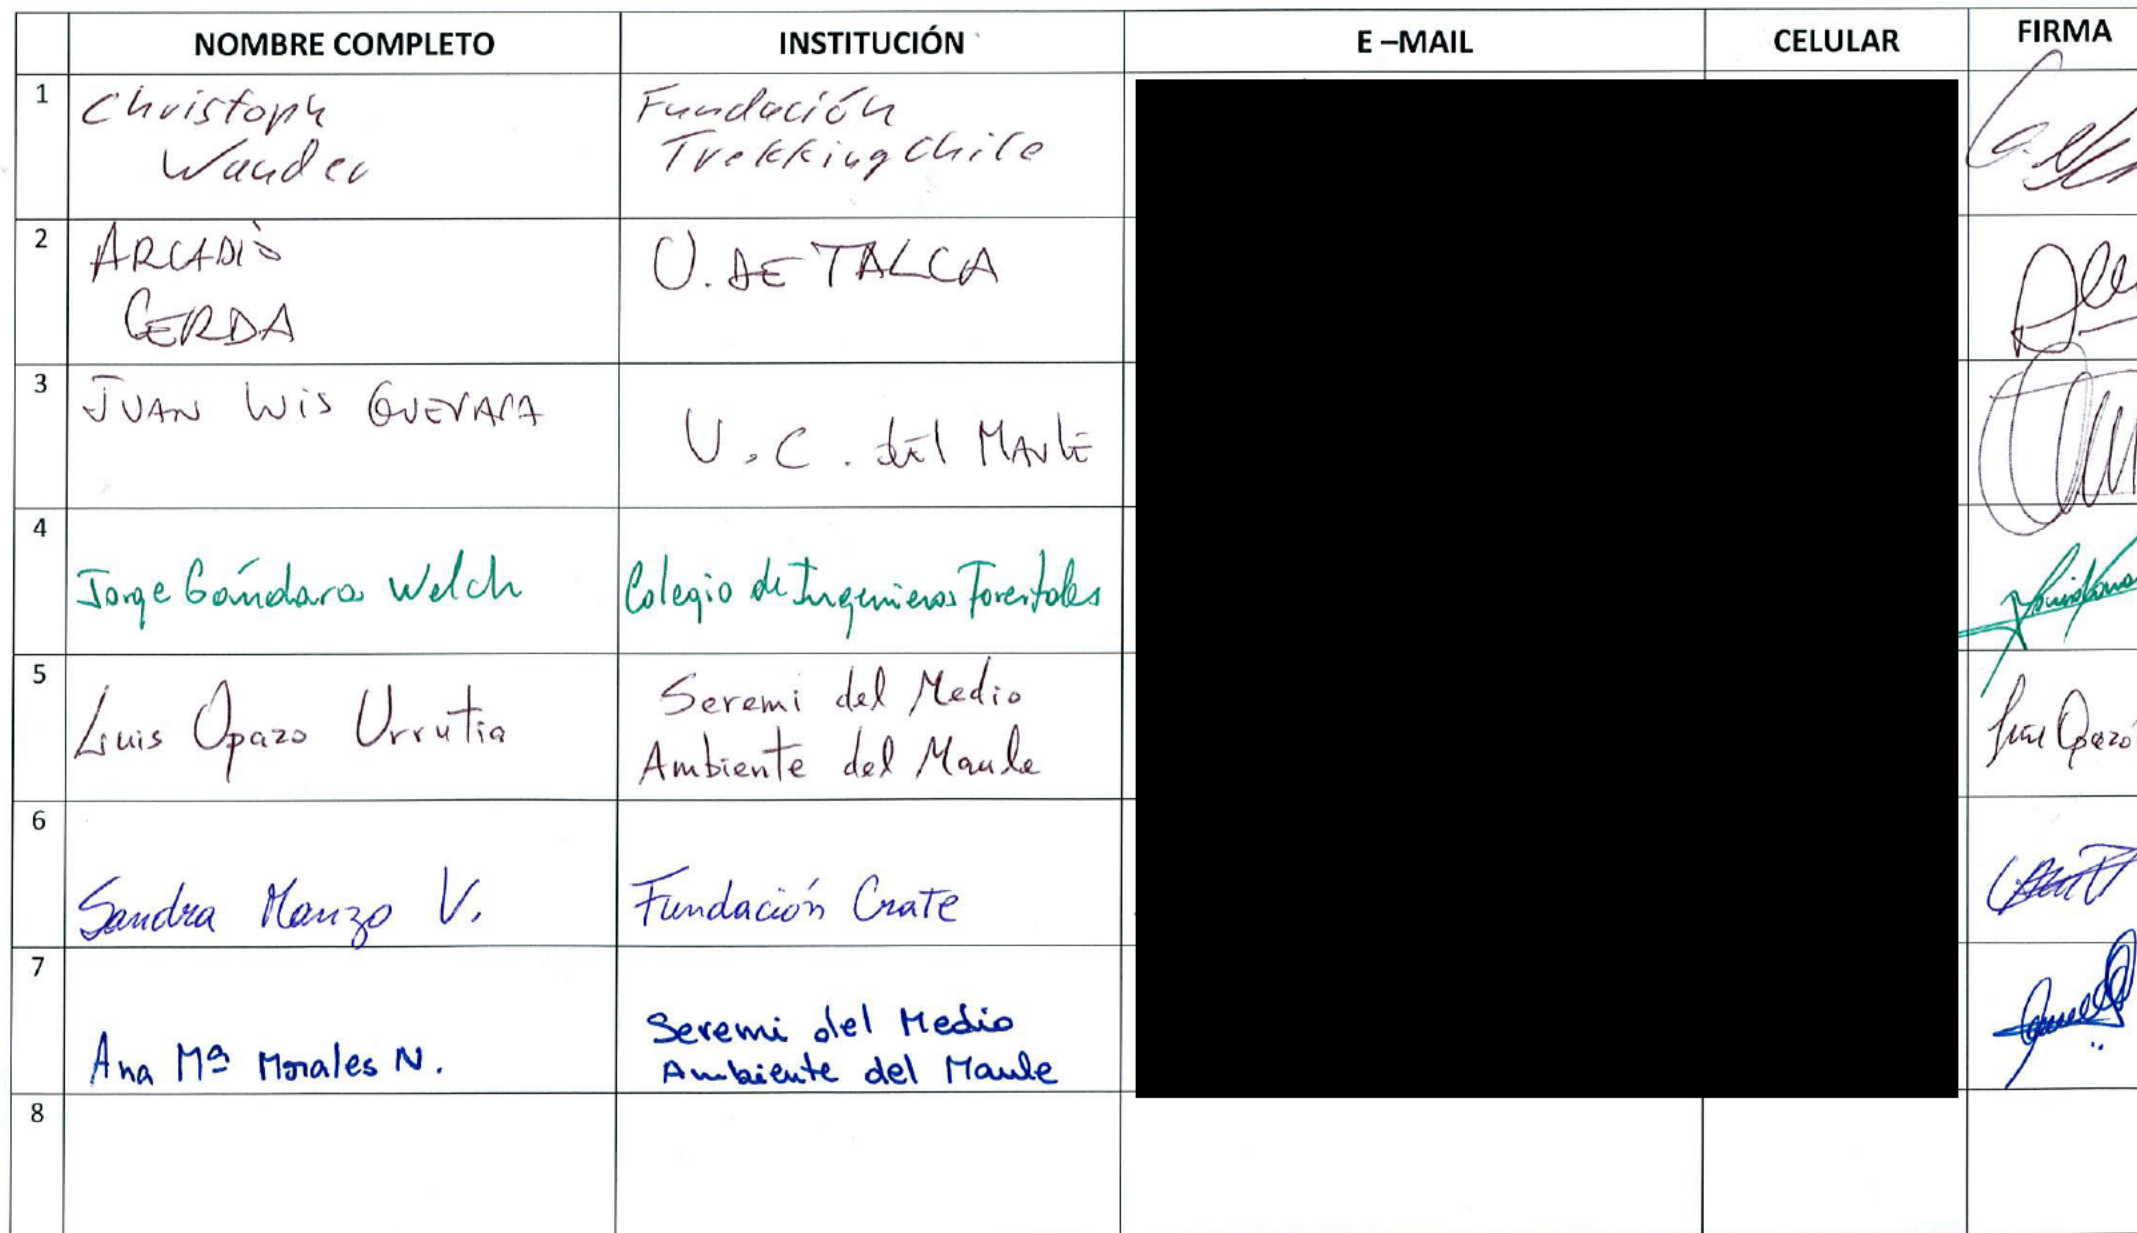 NOMBRE COMPLETO INSTITUCIÓN E –MAIL CELULAR FIRMA
1 Christoph Wander Fundación TrekkingChile
2 ARCADIO CERDA U. DE TALCA
3 JUAN LUIS GUEVARA U. C. del MAULE
4 Jorge Gándara Welch Colegio de Ingenieros Forestales
5 Luis Opazo Urrutia Seremi del Medio Ambiente del Maule Luis Opazo
6 Sandra Manzo V. Fundación Crate
7 Ana Mª Morales N. Seremi del Medio Ambiente del Maule
8